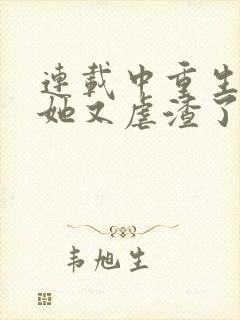 連載中重生
她又虐渣了
韦旭生